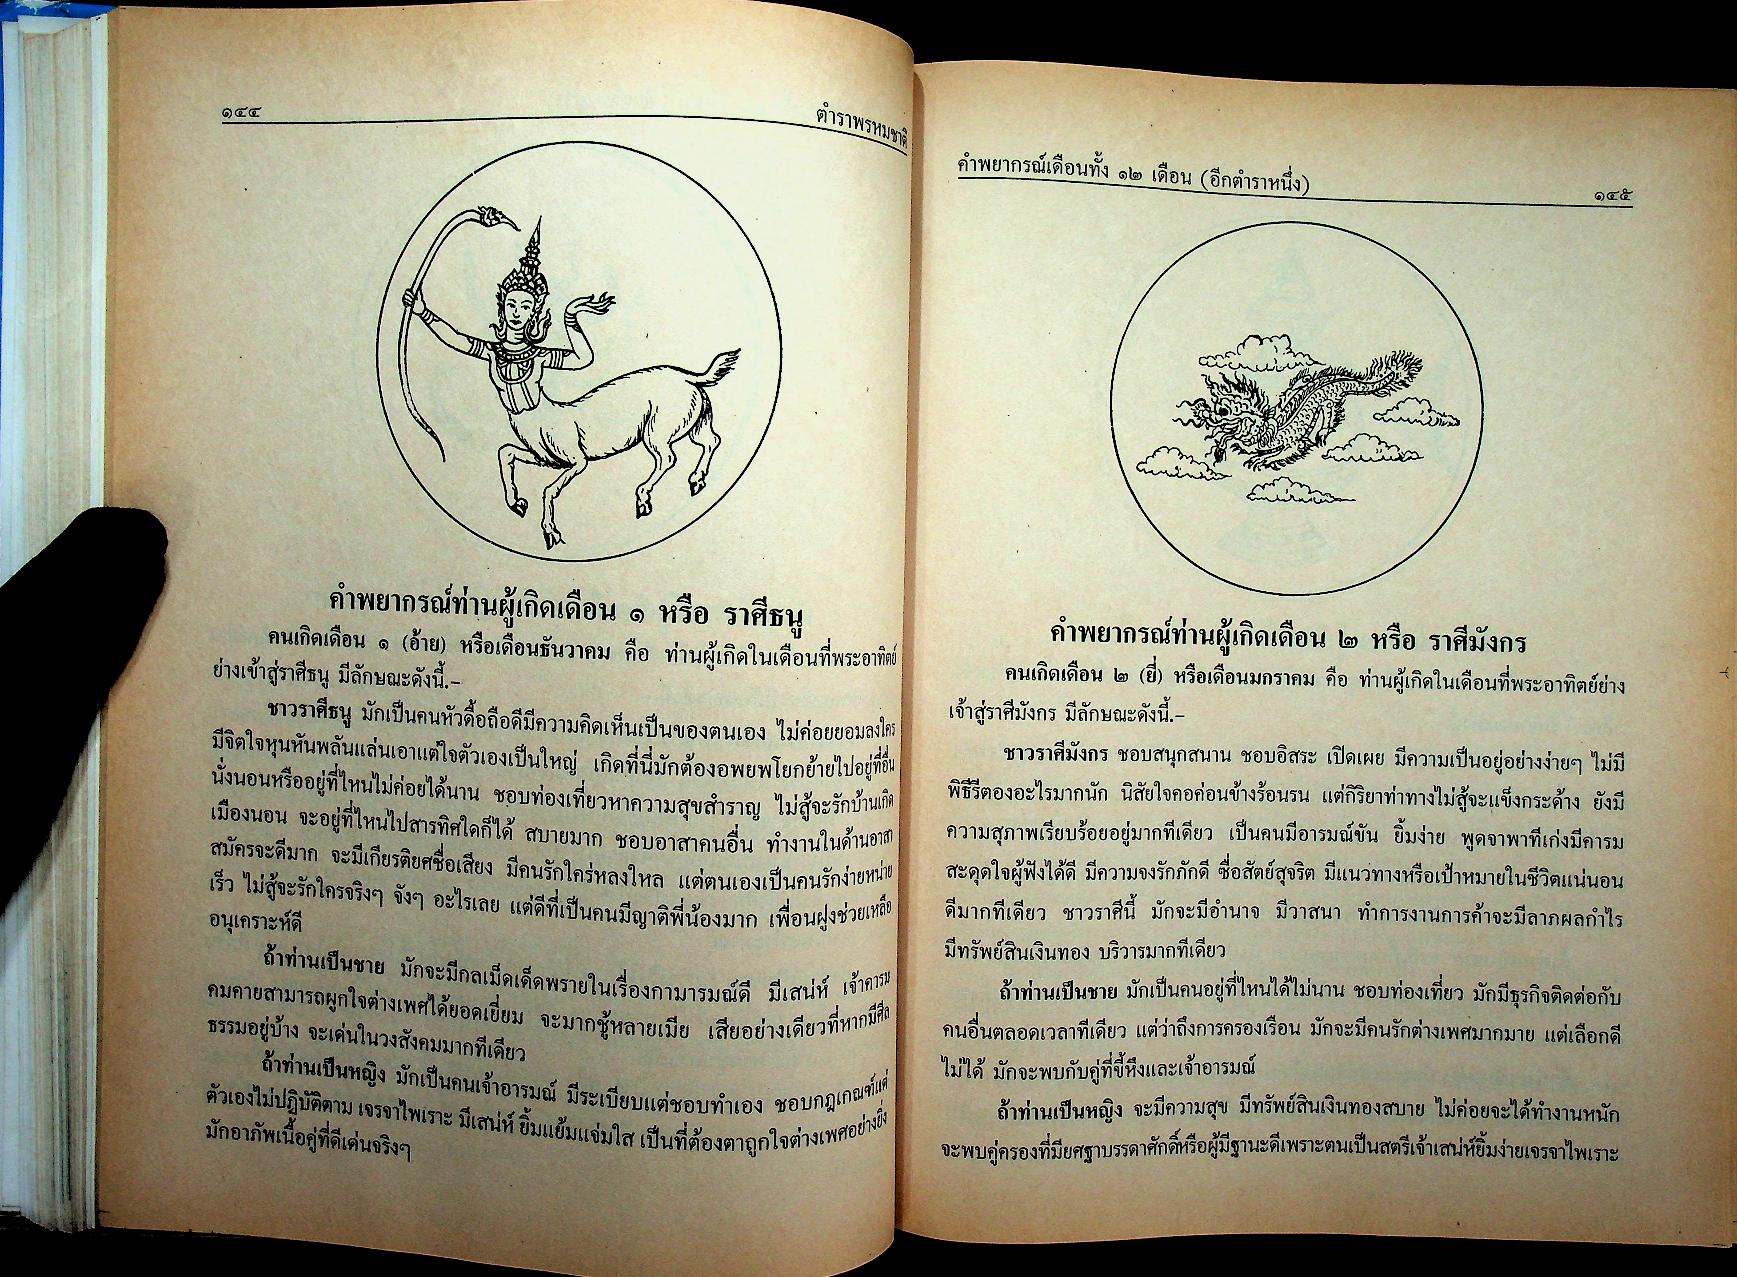 ๑๔๔
ตำราพรหมชาติ
คำพยากรณ์ท่านผู้เกิดเดือน ๑ หรือ ราศีธนู
คนเกิดเดือน ๑ (อ้าย) หรือเดือนธันวาคม คือ ท่านผู้เกิดในเดือนที่พระอาทิตย์
ย่างเข้าสู่ราศีธนู มีลักษณะดังนี้.–
ชาวราศีธนู มักเป็นคนหัวดื้อถือดีมีความคิดเห็นเป็นของตนเอง ไม่ค่อยยอมลงใคร
มีจิตใจหุนหันพลันแล่นเอาแต่ใจตัวเองเป็นใหญ่ เกิดที่นี่มักต้องอพยพโยกย้ายไปอยู่ที่อื่น
นั่งนอนหรืออยู่ที่ไหนไม่ค่อยได้นาน ชอบท่องเที่ยวหาความสุขสำราญ ไม่สู้จะรักบ้านเกิด
เมืองนอน จะอยู่ที่ไหนไปสารทิศใดก็ได้ สบายมาก ชอบอาสาคนอื่น ทำงานในด้านอาสา
สมัครจะดีมาก จะมีเกียรติยศชื่อเสียง มีคนรักใคร่หลงใหล แต่ตนเองเป็นคนรักง่ายหน่าย
เร็ว ไม่สู้จะรักใครจริงๆ จังๆ อะไรเลย แต่ดีที่เป็นคนมีญาติพี่น้องมาก เพื่อนฝูงช่วยเหลือ
อนุเคราะห์ดี
ถ้าท่านเป็นชาย มักจะมีกลเม็ดเด็ดพรายในเรื่องกามารมณ์ดี มีเสน่ห์ เจ้าคารม
คมคายสามารถผูกใจต่างเพศได้ยอดเยี่ยม จะมากชู้หลายเมีย เสียอย่างเดียวที่หากมีศีล
ธรรมอยู่บ้าง จะเด่นในวงสังคมมากทีเดียว
ถ้าท่านเป็นหญิง มักเป็นคนเจ้าอารมณ์ มีระเบียบแต่ชอบทำเอง ชอบกฎเกณฑ์แต่
ตัวเองไม่ปฏิบัติตาม เจรจาไพเราะ มีเสน่ห์ ยิ้มแย้มแจ่มใส เป็นที่ต้องตาถูกใจต่างเพศอย่างยิ่ง
มักอาภัพเนื้อคู่ที่ดีเด่นจริงๆ
คำพยากรณ์เดือนทั้ง ๑๒ เดือน (อีกตำราหนึ่ง)
๑๔๕
คำพยากรณ์ท่านผู้เกิดเดือน ๒ หรือ ราศีมังกร
คนเกิดเดือน ๒ (ยี่) หรือเดือนมกราคม คือ ท่านผู้เกิดในเดือนที่พระอาทิตย์ย่าง
เจ้าสู่ราศีมังกร มีลักษณะดังนี้.–
ชาวราศีมังกร ชอบสนุกสนาน ชอบอิสระ เปิดเผย มีความเป็นอยู่อย่างง่ายๆ ไม่มี
พิธีรีตองอะไรมากนัก นิสัยใจคอค่อนข้างร้อนรน แต่กิริยาท่าทางไม่สู้จะแข็งกระด้าง ยังมี
ความสุภาพเรียบร้อยอยู่มากทีเดียว เป็นคนมีอารมณ์ขัน ยิ้มง่าย พูดจาพาทีเก่งมีคารม
สะดุดใจผู้ฟังได้ดี มีความจงรักภักดี ซื่อสัตย์สุจริต มีแนวทางหรือเป้าหมายในชีวิตแน่นอน
ดีมากทีเดียว ชาวราศีนี้ มักจะมีอำนาจ มีวาสนา ทำการงานการค้าจะมีลาภผลกำไร
มีทรัพย์สินเงินทอง บริวารมากทีเดียว
ถ้าท่านเป็นชาย มักเป็นคนอยู่ที่ไหนได้ไม่นาน ชอบท่องเที่ยว มักมีธุรกิจติดต่อกับ
คนอื่นตลอดเวลาทีเดียว แต่ว่าถึงการครองเรือน มักจะมีคนรักต่างเพศมากมาย แต่เลือกดี
ไม่ได้ มักจะพบกับคู่ที่ขี้หึงและเจ้าอารมณ์
ถ้าท่านเป็นหญิง จะมีความสุข มีทรัพย์สินเงินทองสบาย ไม่ค่อยจะได้ทำงานหนัก
จะพบคู่ครองที่มียศฐาบรรดาศักดิ์หรือผู้มีฐานะดีเพราะตนเป็นสตรีเจ้าเสน่ห์ยิ้มง่ายเจรจาไพเราะ